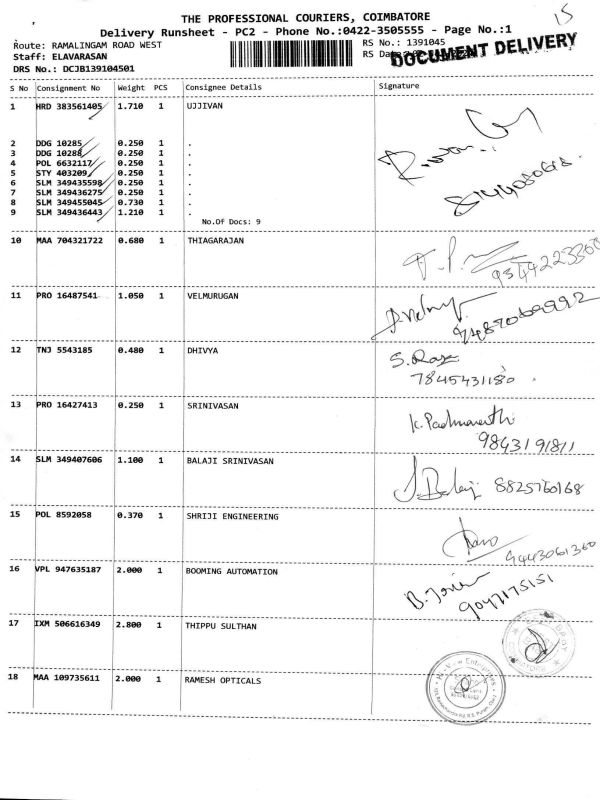 15
THE PROFESSIONAL COURIERS, COIMBATORE
Delivery Runsheet - PC2 - Phone No.:0422-3505555 - Page No.:1
Route: RAMALINGAM ROAD WEST
RS No.: 1391045
Staff: ELAVARASAN
RS Da
DOCUMENT DELIVERY
DRS No.: DCJB139104501
S No Consignment No Weight PCS Consignee Details Signature
1 HRD 383561405 1.710 1 UJJIVAN
2 DDG 10285 0.250 1 .
3 DDG 10288 0.250 1 .
4 POL 6632117 0.250 1 .
5 STY 403209 0.250 1 .
6 SLM 349435598 0.250 1 .
7 SLM 349436275 0.250 1 .
8 SLM 349455045 0.730 1 .
9 SLM 349436443 1.210 1 .
No.Of Docs: 9
10 MAA 704321722 0.680 1 THIAGARAJAN
11 PRO 16487541 1.050 1 VELMURUGAN
9487069992
12 TNJ 5543185 0.480 1 DHIVYA
7845431180
13 PRO 16427413 0.250 1 SRINIVASAN
K. Padmavathi
9843191811
14 SLM 349407606 1.100 1 BALAJI SRINIVASAN
S. Balaji 8825760168
15 POL 8592058 0.370 1 SHRIJI ENGINEERING
9443061360
16 VPL 947635187 2.000 1 BOOMING AUTOMATION
9047175151
17 IXM 506616349 2.800 1 THIPPU SULTHAN
18 MAA 109735611 2.000 1 RAMESH OPTICALS